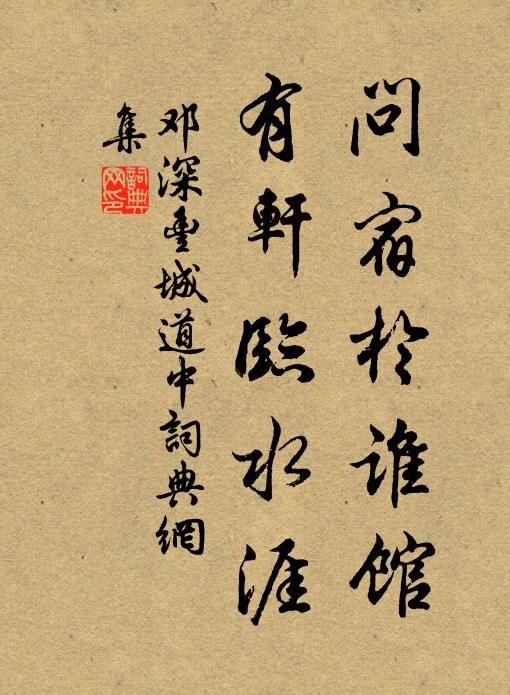 問宿於誰館
有軒臨水涯
邓深豐城道中詞典網
集
詞典網印